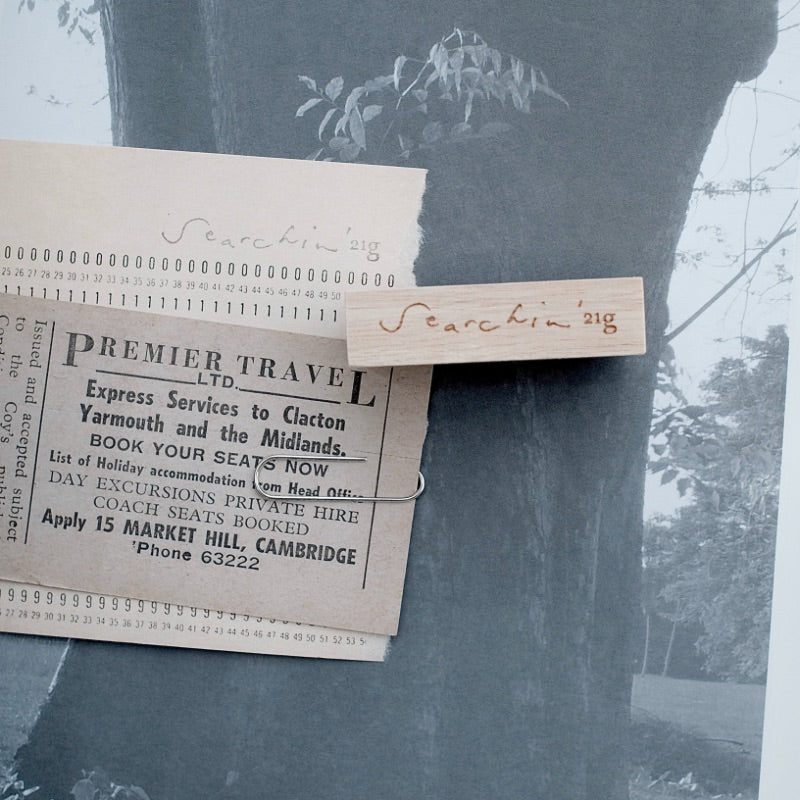 Searchin' 21g
0 0 0 0 0 0 0 0 0 0 0 0 0 0 0 0 0 0 0 0 0 0 0 0 0 0 0 0 0
25 26 27 28 29 30 31 32 33 34 35 36 37 38 39 40 41 42 43 44 45 46 47 48 49 50
1 1 1 1 1 1 1 1 1 1 1 1 1 1 1 1 1 1 1 1 1 1 1 1
Searchin' 21g
Issued and accepted subject
to the Coy's
PREMIER TRAVEL
LTD.
Express Services to Clacton
Yarmouth and the Midlands.
BOOK YOUR SEATS NOW
List of Holiday accommodation from Head Office
DAY EXCURSIONS PRIVATE HIRE
COACH SEATS BOOKED
Apply 15 MARKET HILL, CAMBRIDGE
'Phone 63222
9 9 9 9 9 9 9 9 9 9 9 9 9 9 9 9 9 9 9 9 9 9 9 9 9 9 9
27 28 29 30 31 32 33 34 35 36 37 38 39 40 41 42 43 44 45 46 47 48 49 50 51 52 53